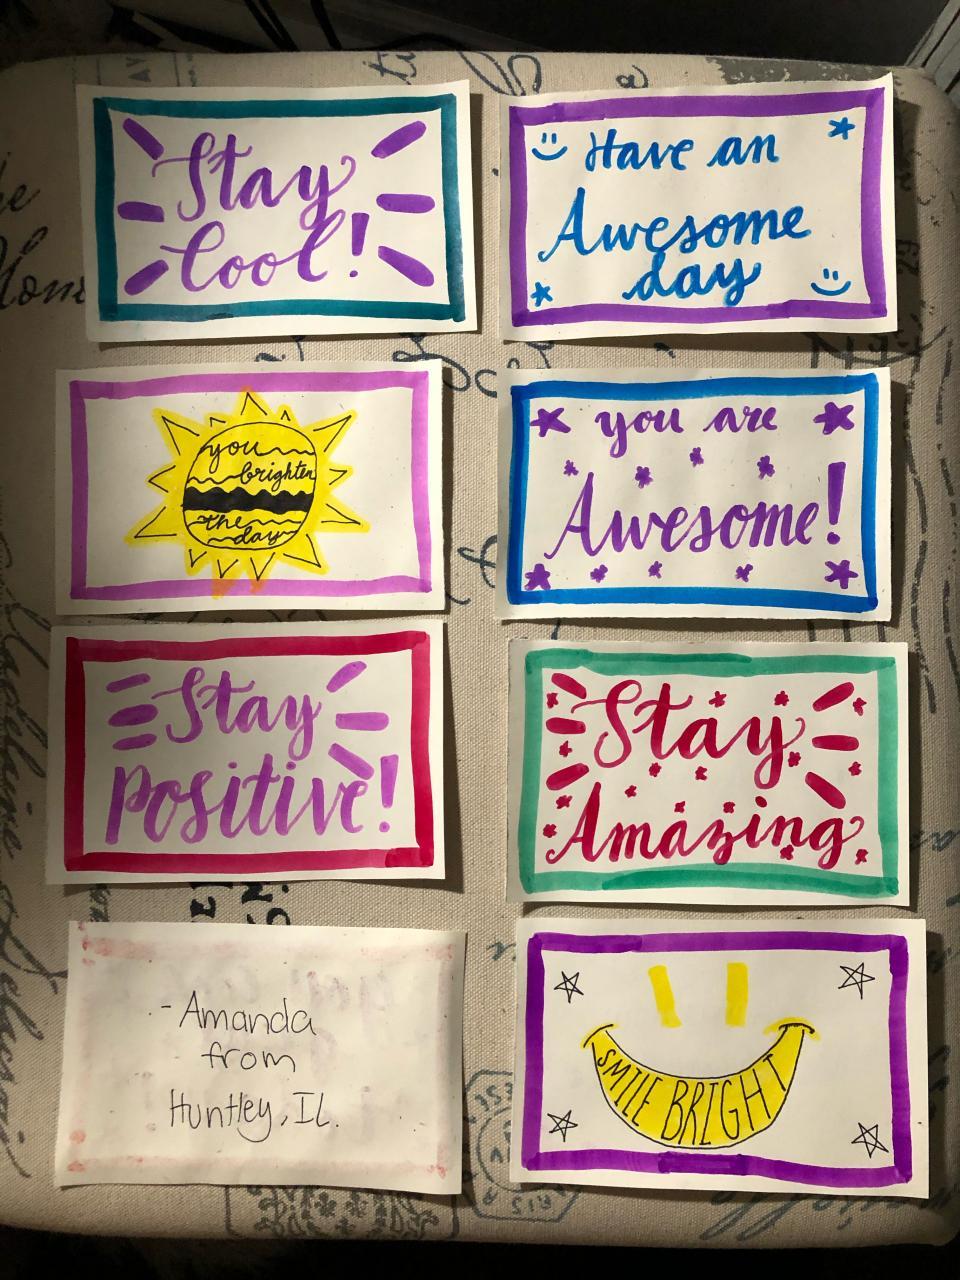 Stay
Cool!
Have an
Awesome
day
you
brighten
the
day
you are
Awesome!
Stay
Positive!
Stay
Amazing
- Amanda
from
Huntley, IL.
SMILE BRIGHT